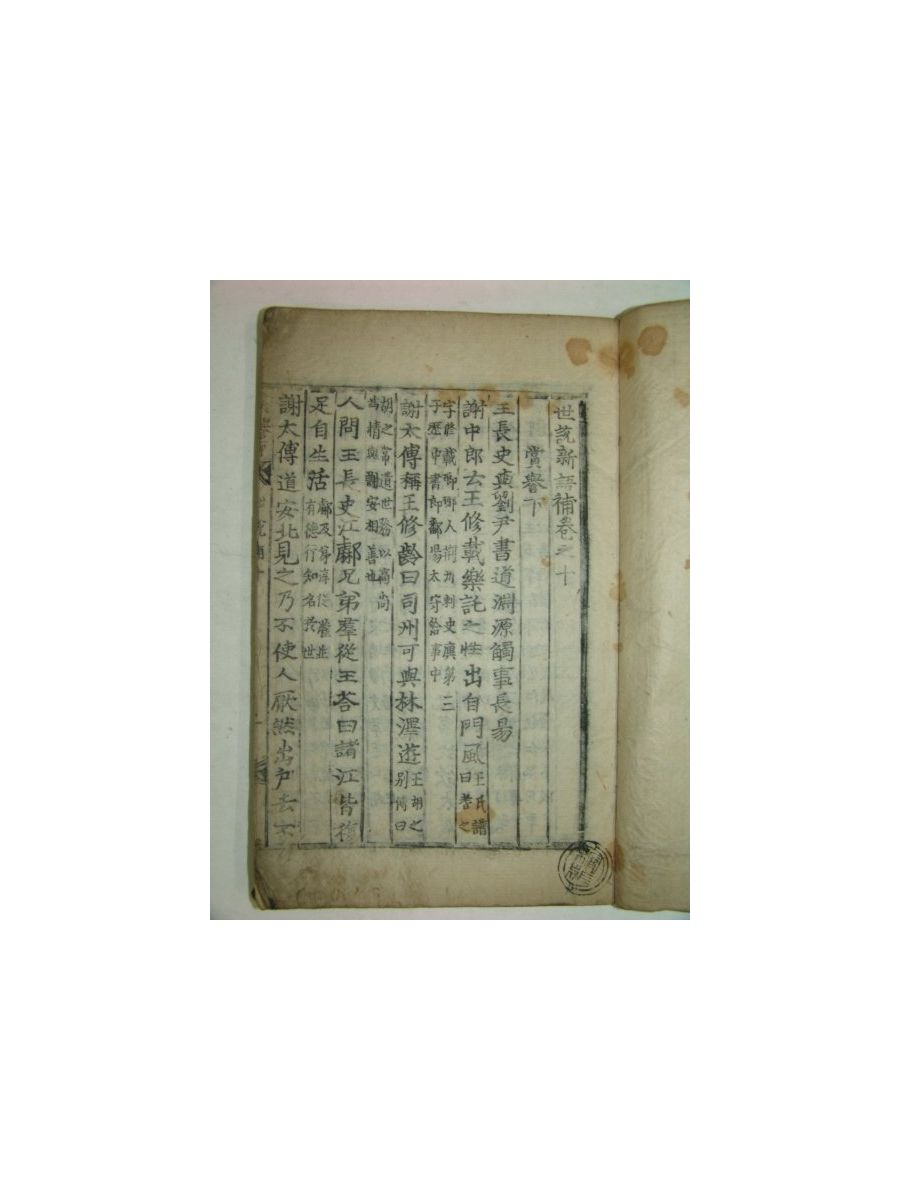 世說新語補卷之十
賞譽下
王長史與劉尹書道淵源觸事長易
謝中郎云王修載樂託之性出自門風王氏譜曰耆之
字脩載瑯琊人荊州刺史廙第三
子歷中書郎鄱陽太守給事中
謝太傅稱王修齡曰司州可與林澤遊王胡之別傳曰
胡之常遺世務以高尚
爲情與謝安相善也
人問王長史江虨兄弟羣從王答曰諸江皆復
足自生活虨及弟淳從灌並有德行知名於世
謝太傅道安北見之乃不使人厭然出戶去不